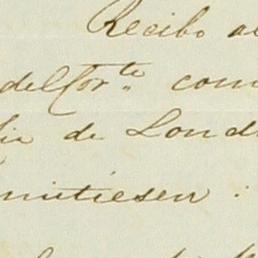 Recibo a
del Cor.te com
de Lond
mitiesen